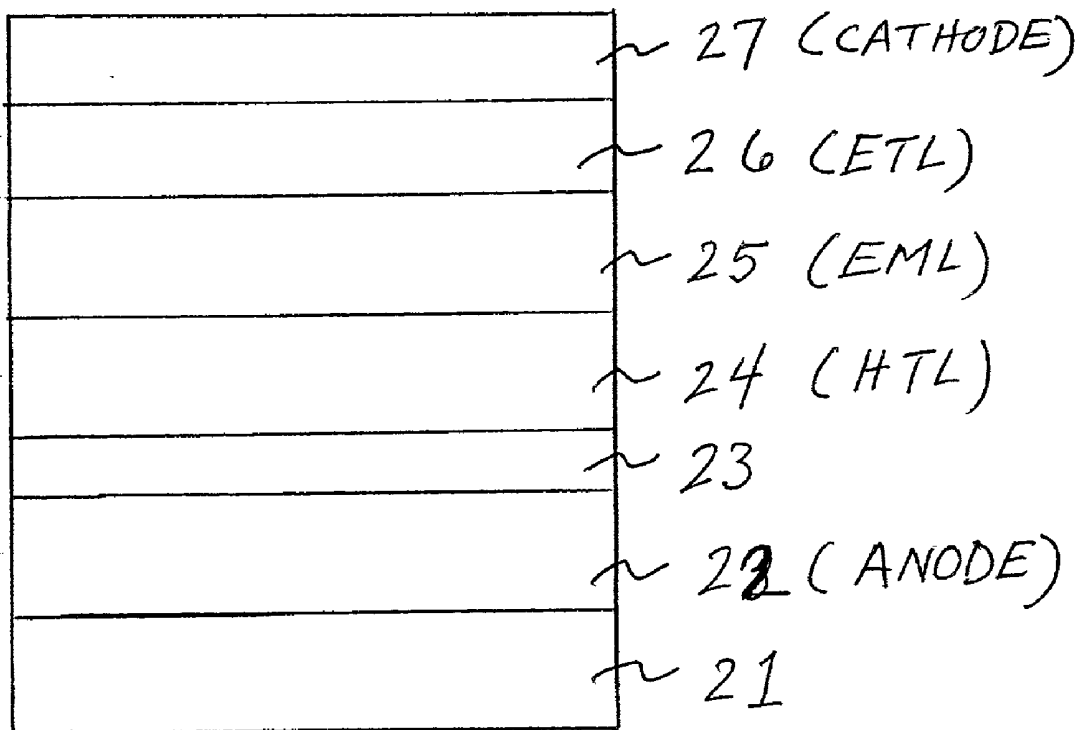 27 (CATHODE)
26 (ETL)
25 (EML)
24 (HTL)
23
22 (ANODE)
21